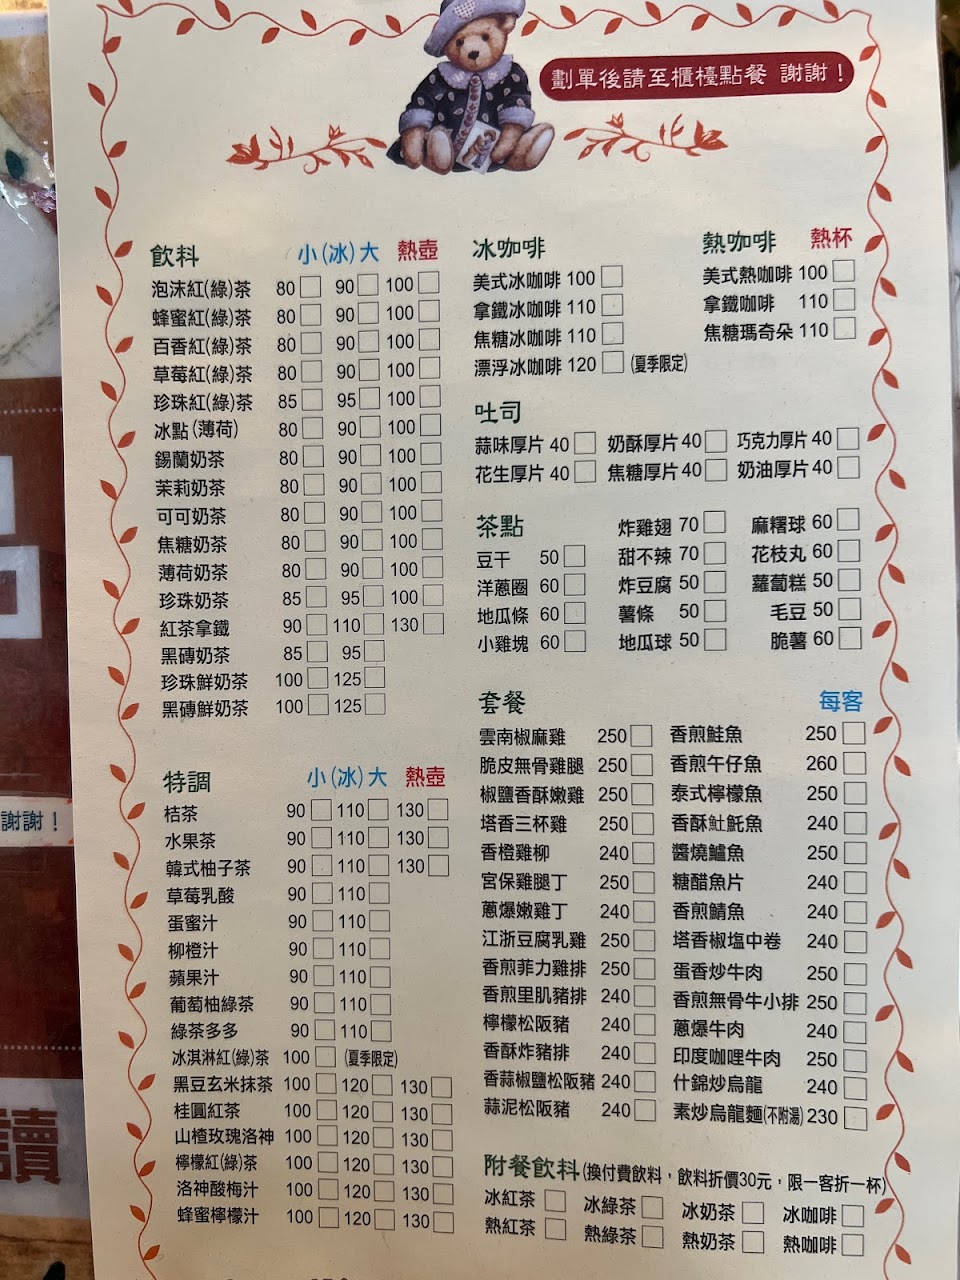 劃單後請至櫃檯點餐 謝謝！
飲料 小(冰)大 熱壺
泡沫紅(綠)茶 80 90 100
蜂蜜紅(綠)茶 80 90 100
百香紅(綠)茶 80 90 100
草莓紅(綠)茶 80 90 100
珍珠紅(綠)茶 85 95 100
冰點(薄荷) 80 90 100
錫蘭奶茶 80 90 100
茉莉奶茶 80 90 100
可可奶茶 80 90 100
焦糖奶茶 80 90 100
薄荷奶茶 80 90 100
珍珠奶茶 85 95 100
紅茶拿鐵 90 110 130
黑磚奶茶 85 95
珍珠鮮奶茶 100 125
黑磚鮮奶茶 100 125
特調 小(冰)大 熱壺
桔茶 90 110 130
水果茶 90 110 130
韓式柚子茶 90 110 130
草莓乳酸 90 110
蛋蜜汁 90 110
柳橙汁 90 110
蘋果汁 90 110
葡萄柚綠茶 90 110
綠茶多多 90 110
冰淇淋紅(綠)茶 100 (夏季限定)
黑豆玄米抹茶 100 120 130
桂圓紅茶 100 120 130
山楂玫瑰洛神 100 120 130
檸檬紅(綠)茶 100 120 130
洛神酸梅汁 100 120 130
蜂蜜檸檬汁 100 120 130
冰咖啡
美式冰咖啡 100
拿鐵冰咖啡 110
焦糖冰咖啡 110
漂浮冰咖啡 120 (夏季限定)
熱咖啡 熱杯
美式熱咖啡 100
拿鐵咖啡 110
焦糖瑪奇朵 110
吐司
蒜味厚片 40 奶酥厚片 40 巧克力厚片 40
花生厚片 40 焦糖厚片 40 奶油厚片 40
茶點
豆干 50
洋蔥圈 60
地瓜條 60
小雞塊 60
炸雞翅 70
甜不辣 70
炸豆腐 50
薯條 50
地瓜球 50
麻糬球 60
花枝丸 60
蘿蔔糕 50
毛豆 50
脆薯 60
套餐 每客
雲南椒麻雞 250
脆皮無骨雞腿 250
椒鹽香酥嫩雞 250
塔香三杯雞 250
香橙雞柳 240
宮保雞腿丁 250
蔥爆嫩雞丁 240
江浙豆腐乳雞 250
香煎菲力雞排 250
香煎里肌豬排 240
檸檬松阪豬 240
香酥炸豬排 240
香蒜椒鹽松阪豬 240
蒜泥松阪豬 240
香煎鮭魚 250
香煎午仔魚 260
泰式檸檬魚 250
香酥𩵚魠魚 240
醬燒鱸魚 250
糖醋魚片 240
香煎鯖魚 240
塔香椒塩中卷 240
蛋香炒牛肉 250
香煎無骨牛小排 250
蔥爆牛肉 240
印度咖哩牛肉 250
什錦炒烏龍 240
素炒烏龍麵(不附湯) 230
附餐飲料(換付費飲料，飲料折價30元，限一客折一杯)
冰紅茶 冰綠茶 冰奶茶 冰咖啡
熱紅茶 熱綠茶 熱奶茶 熱咖啡
謝謝！
讀